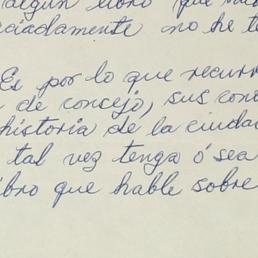 algún libro que
ciadamente no he te
Es por lo que recurr
de concejo, sus cono
historia de la ciuda
tal vez tenga ó sea
ibro que hable sobre